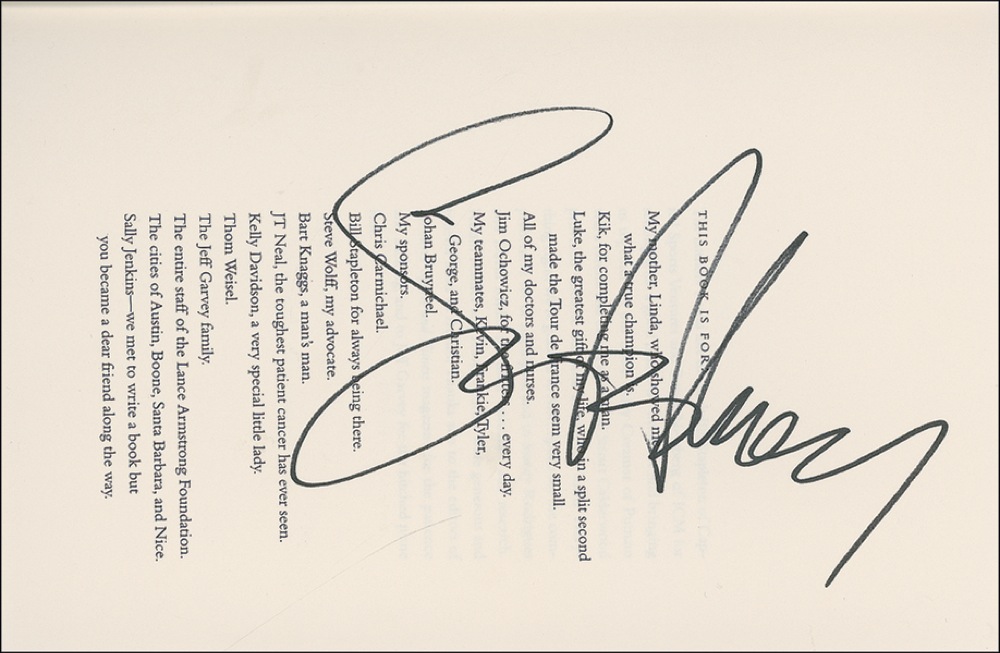 THIS BOOK IS FOR:
My mother, Linda, who showed me
what a true champion is.
Kik, for completing me as a man.
Luke, the greatest gift of my life, who in a split second
made the Tour de France seem very small.
All of my doctors and nurses.
Jim Ochowicz, for the fritters . . . every day.
My teammates, Kevin, Frankie, Tyler,
George, and Christian.
Johan Bruyneel.
My sponsors.
Chris Carmichael.
Bill Stapleton for always being there.
Steve Wolff, my advocate.
Bart Knaggs, a man's man.
JT Neal, the toughest patient cancer has ever seen.
Kelly Davidson, a very special little lady.
Thom Weisel.
The Jeff Garvey family.
The entire staff of the Lance Armstrong Foundation.
The cities of Austin, Boone, Santa Barbara, and Nice.
Sally Jenkins—we met to write a book but
you became a dear friend along the way.